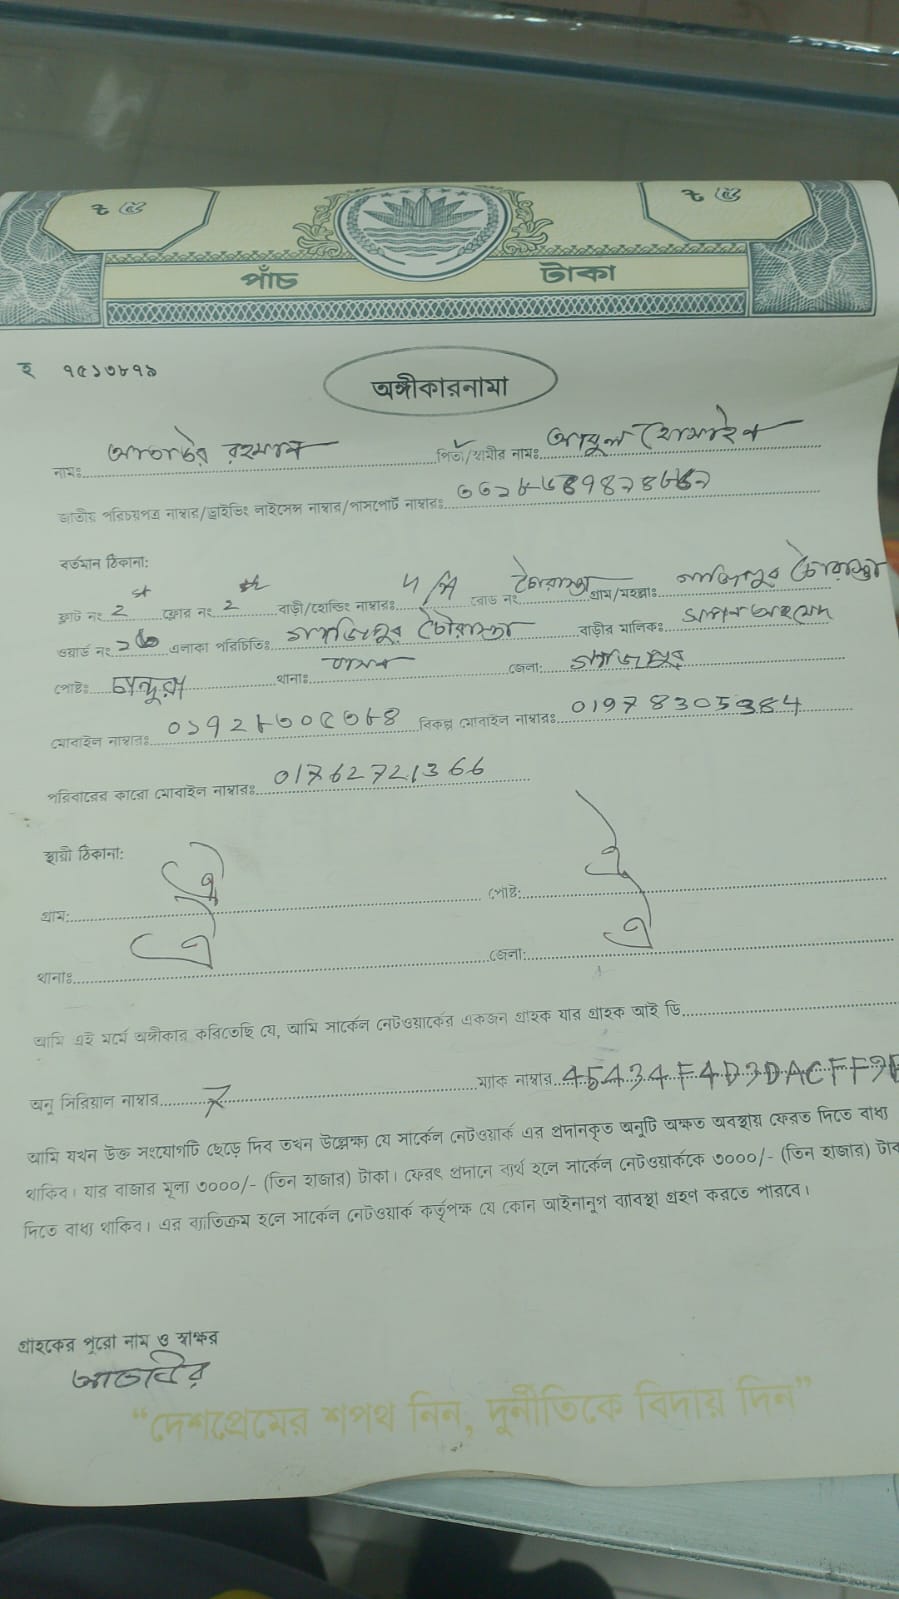 ৳ ৫ ৳ ৫
পাঁচ টাকা
ই ৭৫১৩৮৭৯
অঙ্গীকারনামা
নামঃ রহমান পিতা/স্বামীর নামঃ আবুল হোসাইন
জাতীয় পরিচয়পত্র নাম্বার/ড্রাইভিং লাইসেন্স নাম্বার/পাসপোর্ট নাম্বারঃ
বর্তমান ঠিকানা:
ফ্লাট নং 2 ফ্লোর নং 2 বাড়ী/হোল্ডিং নাম্বারঃ রোড নং চৌরাস্তা গ্রাম/মহল্লাঃ গাজিপুর চৌরাস্তা
ওয়ার্ড নং এলাকা পরিচিতিঃ গাজিপুর চৌরাস্তা বাড়ীর মালিকঃ আহমেদ
পোষ্টঃ চান্দুরা থানাঃ বাসন জেলা: গাজিপুর
মোবাইল নাম্বারঃ ০১৭২৮৩০৫৩৮৪ বিকল্প মোবাইল নাম্বারঃ 01978305384
পরিবারের কারো মোবাইল নাম্বারঃ 01762721366
স্থায়ী ঠিকানা:
গ্রাম: ঐ পোষ্ট: ঐ
থানাঃ ঐ জেলা: ঐ
আমি এই মর্মে অঙ্গীকার করিতেছি যে, আমি সার্কেল নেটওয়ার্কের একজন গ্রাহক যার গ্রাহক আই ডি
অনু সিরিয়াল নাম্বার ম্যাক নাম্বার 45434F4D3DACFF
আমি যখন উক্ত সংযোগটি ছেড়ে দিব তখন উল্লেক্ষ্য যে সার্কেল নেটওয়ার্ক এর প্রদানকৃত অনুটি অক্ষত অবস্থায় ফেরত দিতে বাধ্য
থাকিব। যার বাজার মূল্য ৩০০০/- (তিন হাজার) টাকা। ফেরৎ প্রদানে ব্যর্থ হলে সার্কেল নেটওয়ার্ককে ৩০০০/- (তিন হাজার) টাকা
দিতে বাধ্য থাকিব। এর ব্যাতিক্রম হলে সার্কেল নেটওয়ার্ক কর্তৃপক্ষ যে কোন আইনানুগ ব্যাবস্থা গ্রহণ করতে পারবে।
গ্রাহকের পূরো নাম ও স্বাক্ষর
“দেশপ্রেমের শপথ নিন, দুর্নীতিকে বিদায় দিন”